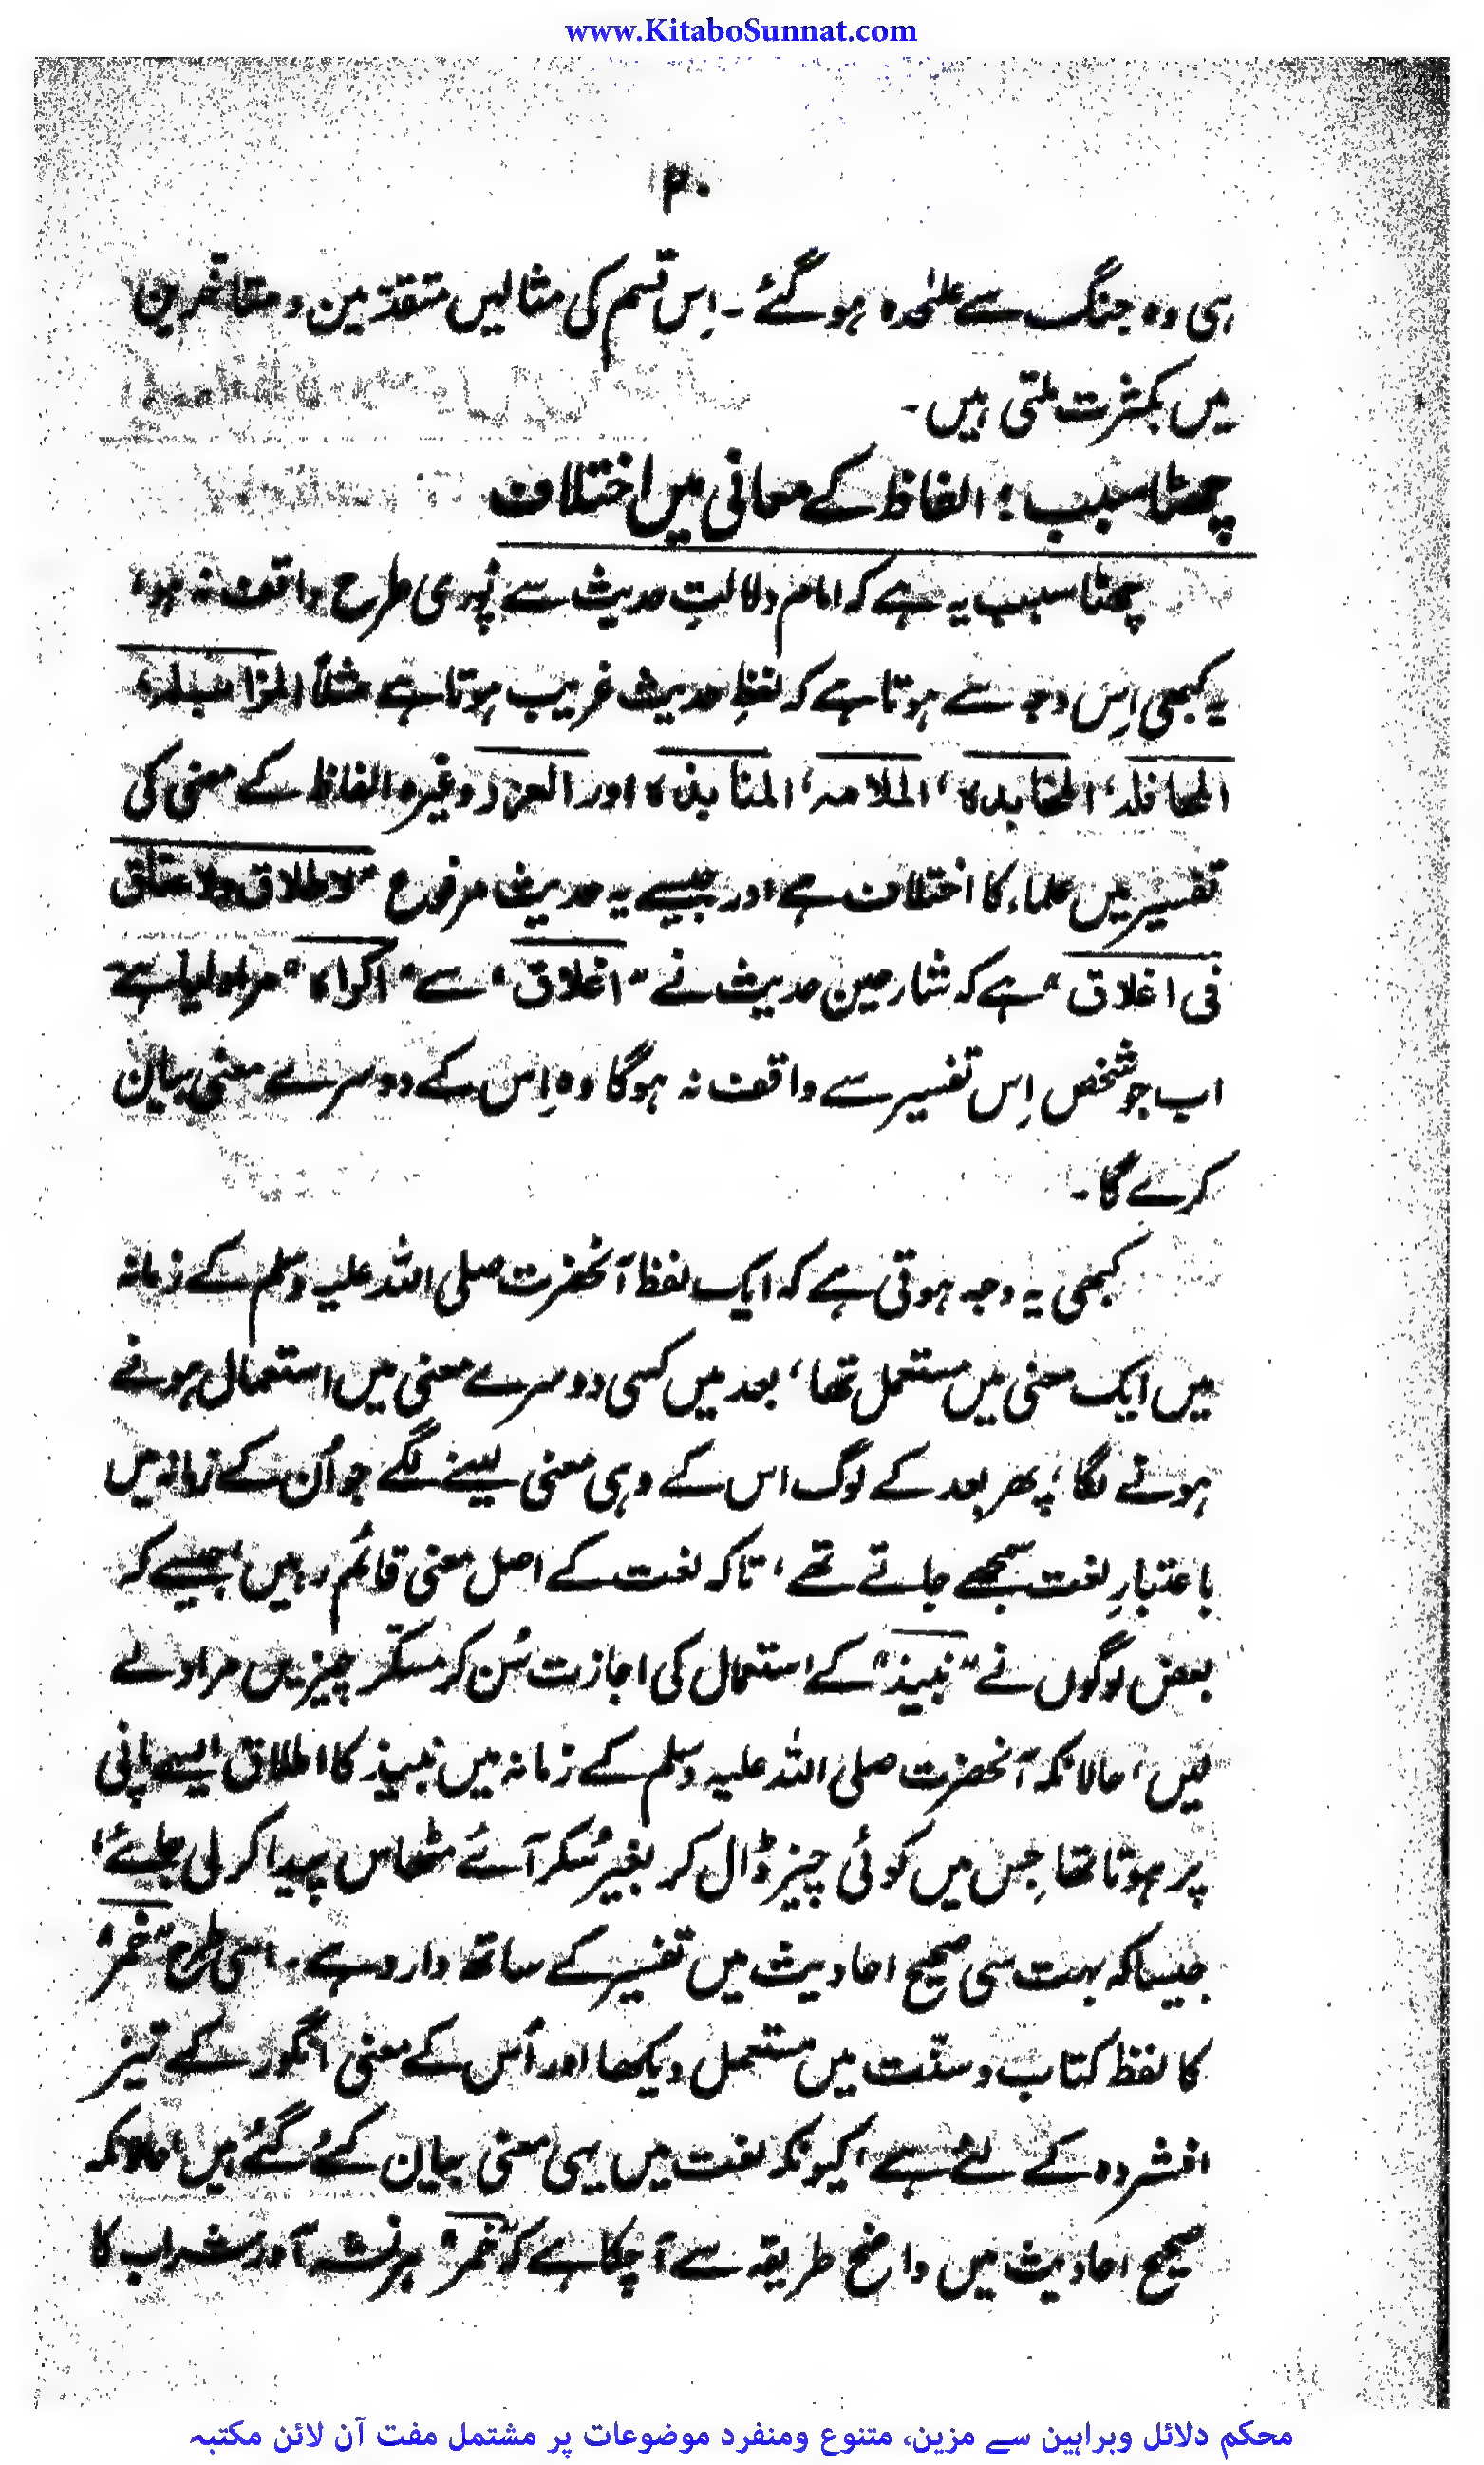 www.KitaboSunnat.com
۲۰
ہی وہ جنگ سے علیٰحدہ ہو گئے ۔ اِس قسم کی مثالیں متقدّمین و متاخّرین
میں بکثرت ملتی ہیں ۔
چھٹا سبب : الفاظ کے معانی میں اختلاف
چھٹا سبب یہ ہے کہ امام دلالتِ حدیث سے پُوری طرح واقف نہ ہو،
یہ کبھی اِس وجہ سے ہوتا ہے کہ لفظِ حدیث غریب ہوتا ہے مثلاً المزابنہ،
المحاقلہ، المخابرہ، الملامسہ، المنابذہ اور الغرر وغیرہ الفاظ کے معنی کی
تفسیر میں علماء کا اختلاف ہے اور جیسے یہ حدیث مرفوع "لا طلاق ولا عتاق
فی اغلاق" ہے کہ شارحین حدیث نے "اغلاق" سے "اکراہ" مراد لیا ہے
اب جو شخص اِس تفسیر سے واقف نہ ہوگا وہ اِس کے دوسرے معنی بیان
کرے گا ۔
کبھی یہ وجہ ہوتی ہے کہ ایک لفظ آنحضرت صلی اللہ علیہ وسلم کے زمانہ
میں ایک معنی میں مستعمل تھا، بعد میں کسی دوسرے معنی میں استعمال ہونے
ہونے لگا، پھر بعد کے لوگ اس کے وہی معنی لینے لگے جو اُن کے زمانہ میں
باعتبارِ لغت سمجھے جاتے تھے، تاکہ لغت کے اصل معنی قائم رہیں، جیسے کہ
بعض لوگوں نے "نبیذ" کے استعمال کی اجازت سُن کر مسکر چیزیں مراد لے
لیں، حالانکہ آنحضرت صلی اللہ علیہ وسلم کے زمانہ میں نبیذ کا اطلاق ایسے پانی
پر ہوتا تھا جِس میں کوئی چیز ڈال کر بغیر سُکر آئے مٹھاس پیدا کر لی جائے،
جیسا کہ بہت سی صحیح احادیث میں تفسیر کے ساتھ وارد ہے ۔ اسی طرح "خمر"
کا لفظ کتاب و سنّت میں مستعمل دیکھا اور اُس کے معنی انگور کے تیز
افشردہ کے لئے ہے، کیونکہ لغت میں یہی معنی بیان کئے گئے ہیں، حالانکہ
صحیح احادیث میں واضح طریقہ سے آ چکا ہے کہ "خمر" ہر نشہ آور شراب کا
محکم دلائل وبراہین سے مزین، متنوع ومنفرد موضوعات پر مشتمل مفت آن لائن مکتبہ